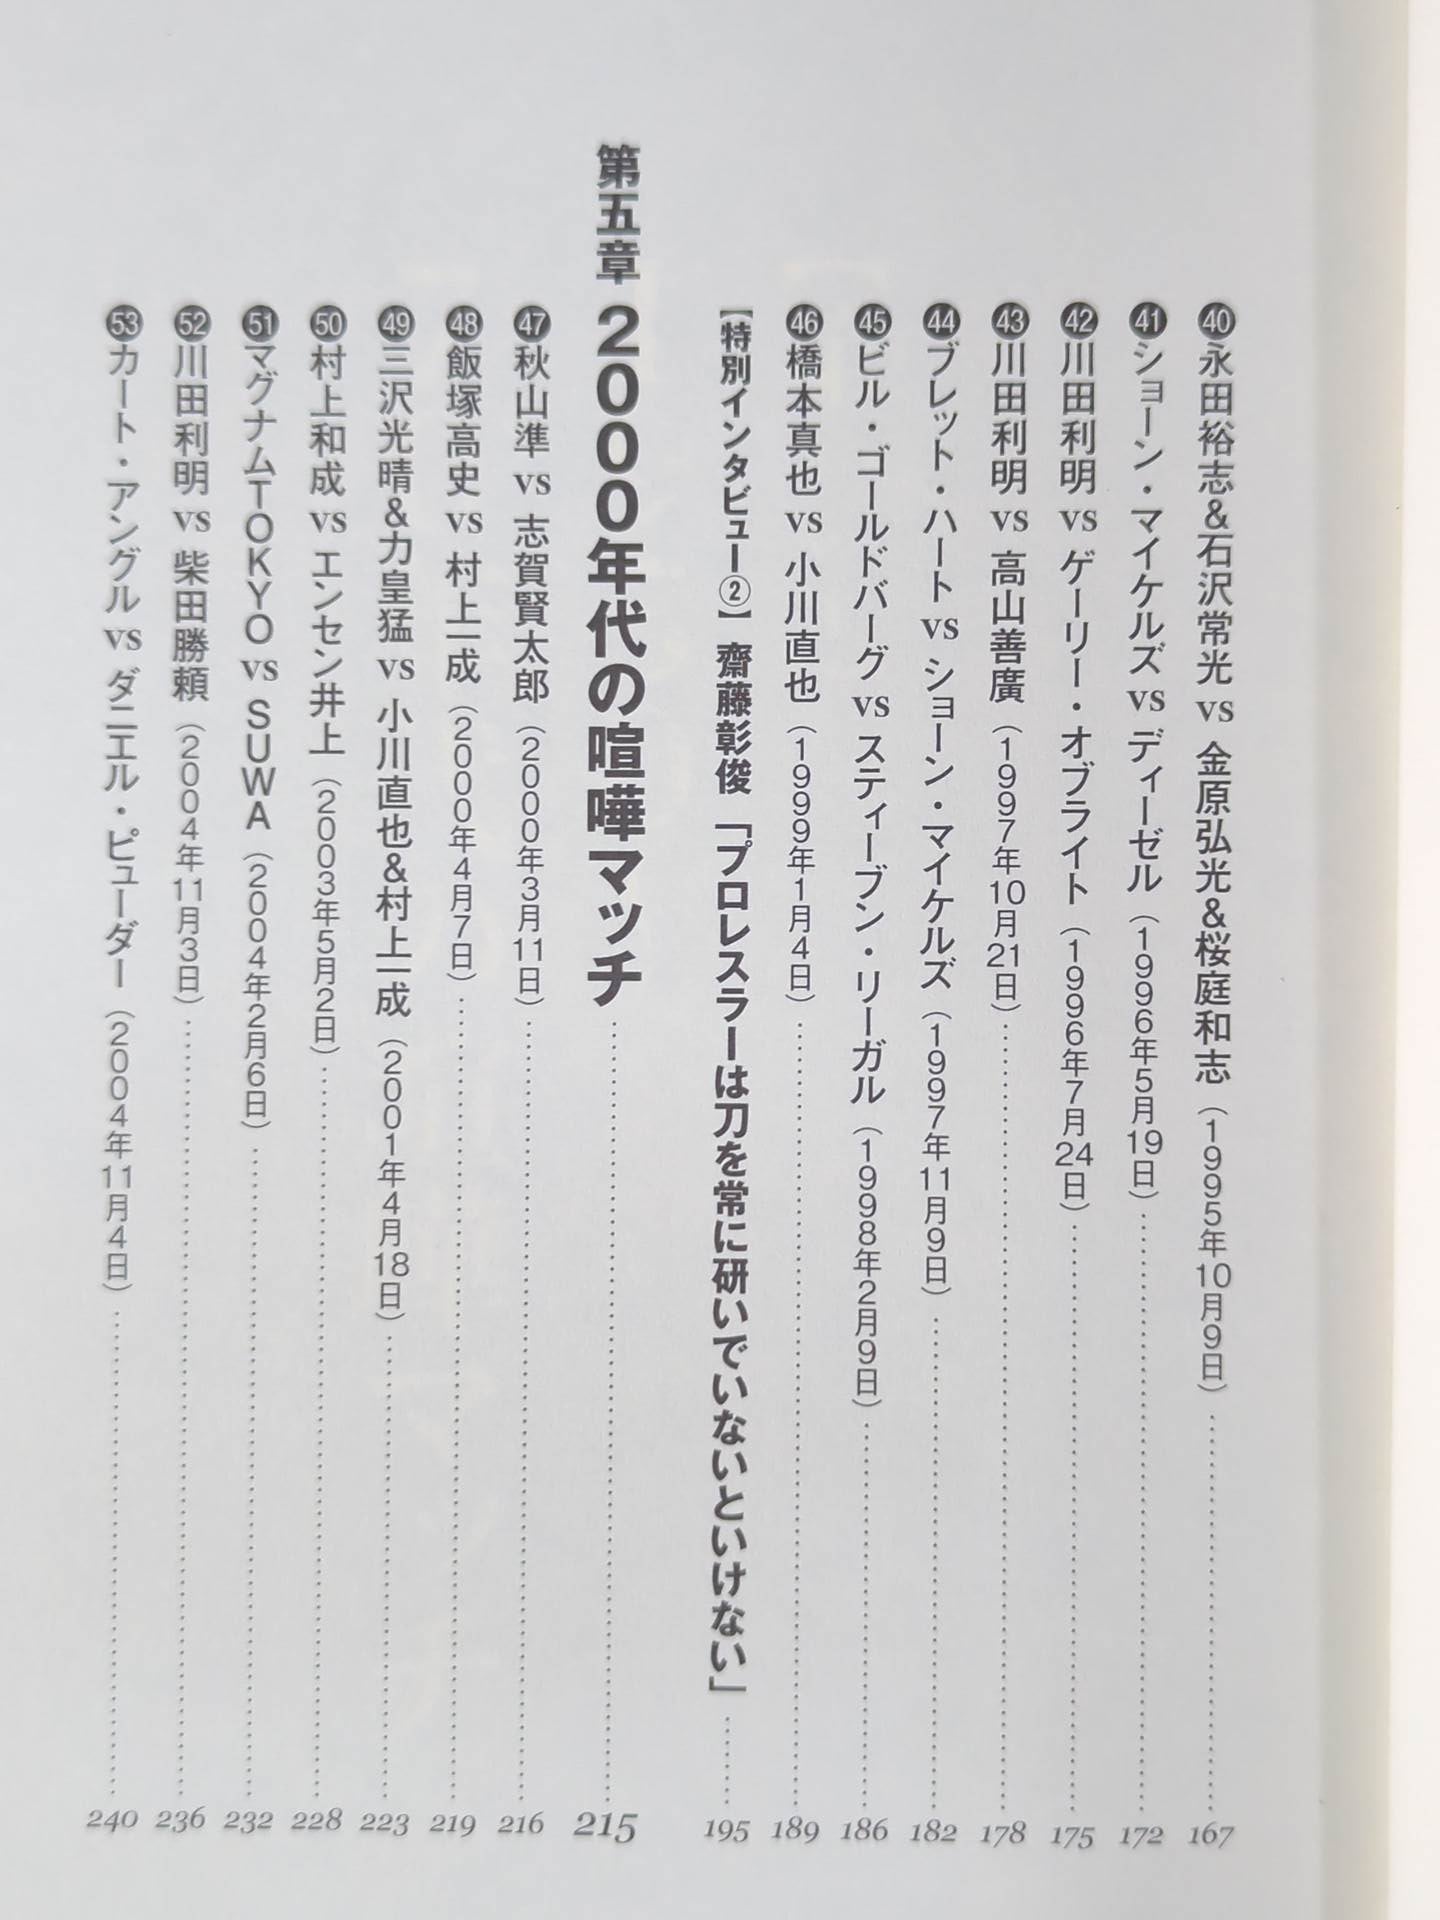 ㊵永田裕志&石沢常光 vs 金原弘光&桜庭和志(1995年10月9日)……167
㊶ショーン・マイケルズ vs ディーゼル(1996年5月19日)……172
㊷川田利明 vs ゲーリー・オブライト(1996年7月24日)……175
㊸川田利明 vs 高山善廣(1997年10月21日)……178
㊹ブレット・ハート vs ショーン・マイケルズ(1997年11月9日)……182
㊺ビル・ゴールドバーグ vs スティーブン・リーガル(1998年2月9日)……186
㊻橋本真也 vs 小川直也(1999年1月4日)……189
【特別インタビュー②】齋藤彰俊「プロレスラーは刀を常に研いでいないといけない」……195
第五章 2000年代の喧嘩マッチ……215
㊼秋山準 vs 志賀賢太郎(2000年3月11日)……216
㊽飯塚高史 vs 村上一成(2000年4月7日)……219
㊾三沢光晴&力皇猛 vs 小川直也&村上一成(2001年4月18日)……223
㊿村上和成 vs エンセン井上(2003年5月2日)……228
51マグナムTOKYO vs SUWA(2004年2月6日)……232
52川田利明 vs 柴田勝頼(2004年11月3日)……236
53カート・アングル vs ダニエル・ピューダー(2004年11月4日)……240